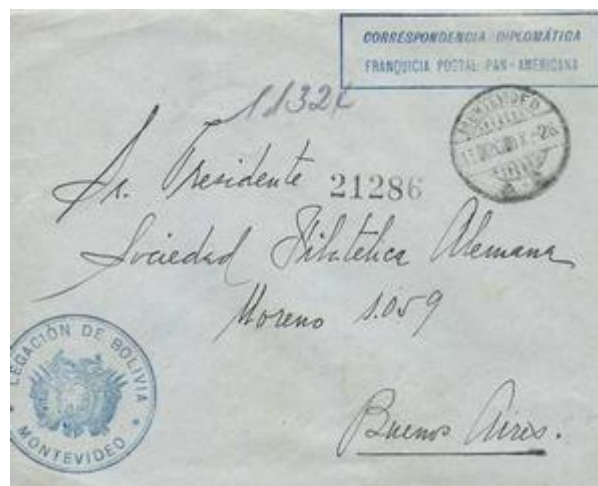 CORRESPONDENCIA DIPLOMÁTICA
FRANQUICIA POSTAL PAN-AMERICANA
MONTEVIDEO
Sr. Presidente
21286
Sociedad Filatelica Alemana
Moreno 1.059
LEGACIÓN DE BOLIVIA
MONTEVIDEO
Buenos Aires.